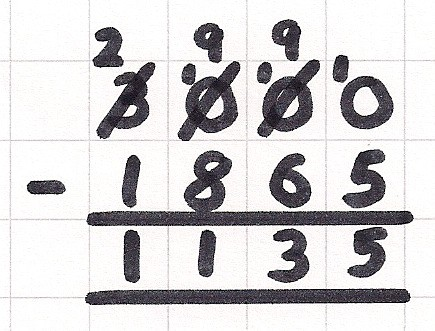 2 9 9
3 ¹0 ¹0 ¹0
- 1 8 6 5
1 1 3 5